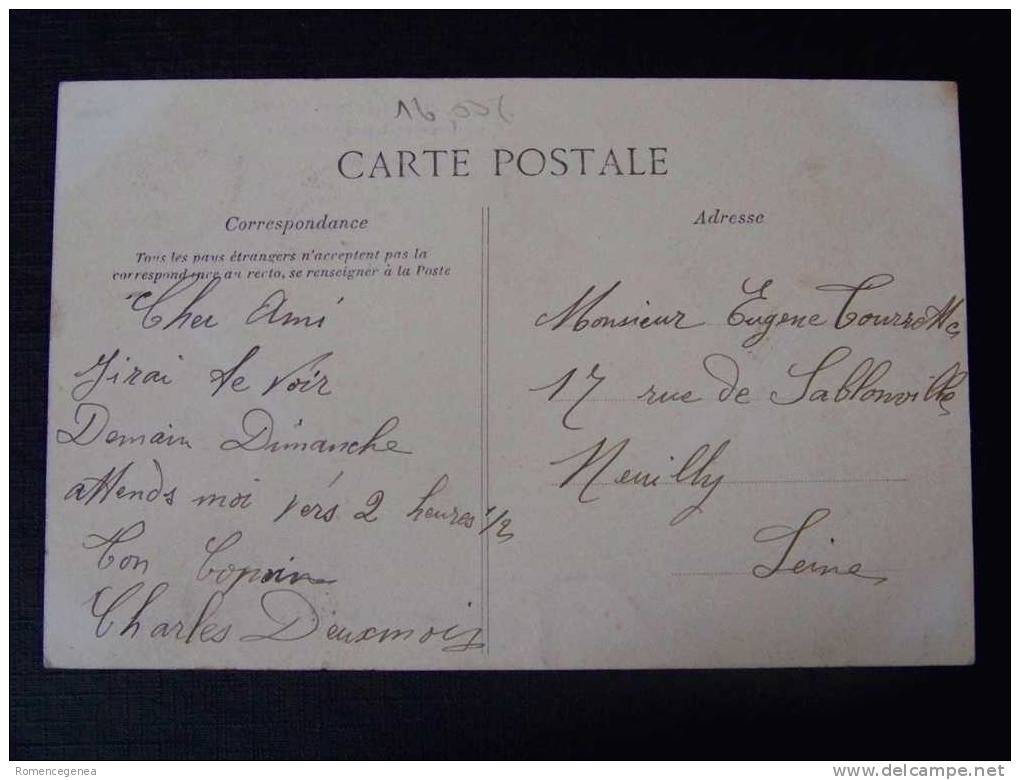 CARTE POSTALE
Correspondance
Tous les pays étrangers n'acceptent pas la
correspondance au recto, se renseigner à la Poste
Cher Ami
Jirai te voir
Demain Dimanche
attends moi vers 2 heures 1/2
Ton Copain
Charles Deuxmois
Adresse
Monsieur Eugene Tourrette
17 rue de Sablonville
Neuilly
Seine
Romencegenea
www.delcampe.net